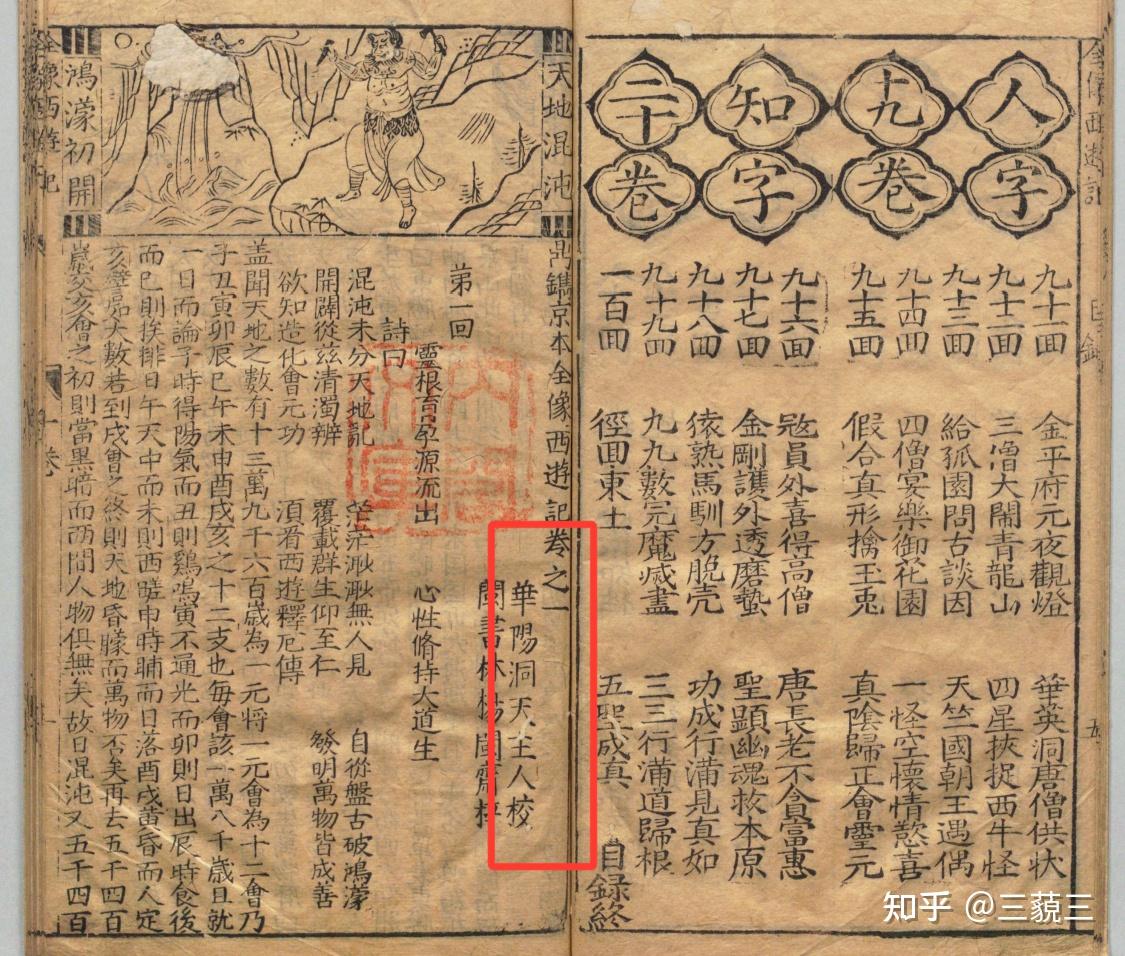 全像西遊記
人字
十九卷
九十一囬 金平府元夜觀燈 華英洞唐僧供狀
九十二囬 三僧大鬧青龍山 四星挾捉西牛怪
九十三囬 給孤園問古談因 天竺國朝王遇偶
九十四囬 四僧宴樂御花園 一怪空懷情慾喜
九十五囬 假合真形擒玉兎 真陰歸正會靈元
知字
二十卷
九十六囬 冦員外喜得高僧 唐長老不貪富惠
九十七囬 金剛護外透磨蟄 聖顯幽魂救本原
九十八囬 猿熟馬馴方脫壳 功成行滿見真如
九十九囬 九九數完魔滅盡 三三行滿道歸根
一百囬 徑囬東土 五聖成真
目錄終
天地混沌
鴻濛初開
鼎鐫京本全像西遊記卷之一
華陽洞天主人校
閩書林楊閩齋梓
第一回
靈根育孕源流出 心性脩持大道生
詩曰
混沌未分天地亂 茫茫渺渺無人見 自從盤古破鴻濛
開闢從兹清濁辨 覆載群生仰至仁 發明萬物皆成善
欲知造化會元功 須看西遊釋厄傳
盖聞天地之數有十二萬九千六百歲為一元將一元會為十二會乃
子丑寅卯辰巳午未申酉戌亥之十二支也每會該一萬八千歲且就
一日而論子時得陽氣而丑則鷄鳴寅不通光而卯則日出辰時食後
而巳則挨排日午天中而未則西蹉申時晡而日落酉戌黄昏而人定
亥譬扵大數若到戌會之終則天地昏矇而萬物否矣再去五千四百
歲交亥會之初則當黑暗而兩間人物俱無矣故曰混沌又五千四百
全像西遊記
一卷
知乎 @三藐三